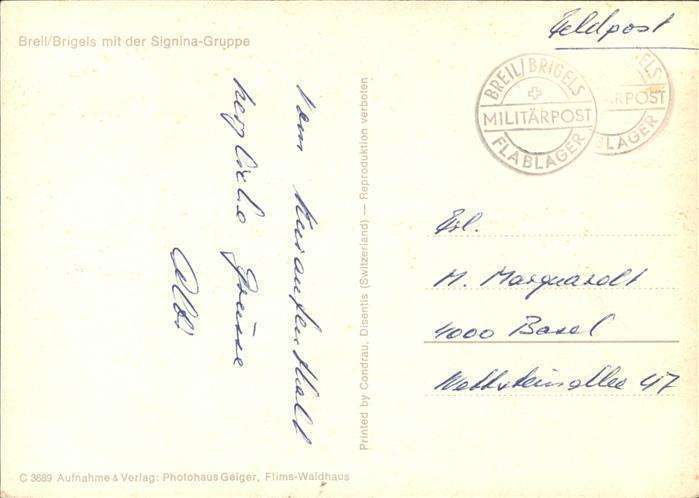 Breil/Brigels mit der Signina-Gruppe
Vom Kuraufenthalt
herzliche Grüsse
Printed by Condrau, Disentis (Switzerland) — Reproduktion verboten
Feldpost
BREIL/BRIGELS
MILITÄRPOST
FLABLAGER
ELS
ÄRPOST
BLAGER
Frl.
M. Marquardt
4000 Basel
Wettsteinallee 47
C 3689 Aufnahme & Verlag: Photohaus Geiger, Flims-Waldhaus